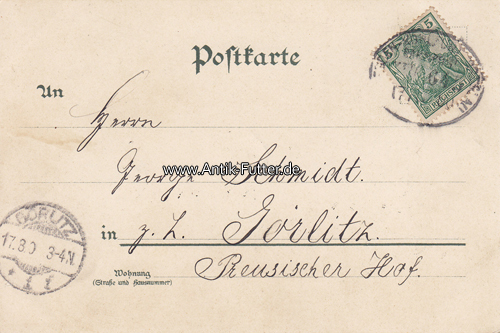 Postkarte
5 5
An
Herrn
George Schmidt.
www.Antik-Futter.de
in z. Z. Görlitz.
Preusischer Hof.
Wohnung
(Straße und Hausnummer)
GÖRLITZ
17.8.0 3-4.N.
* 1 f